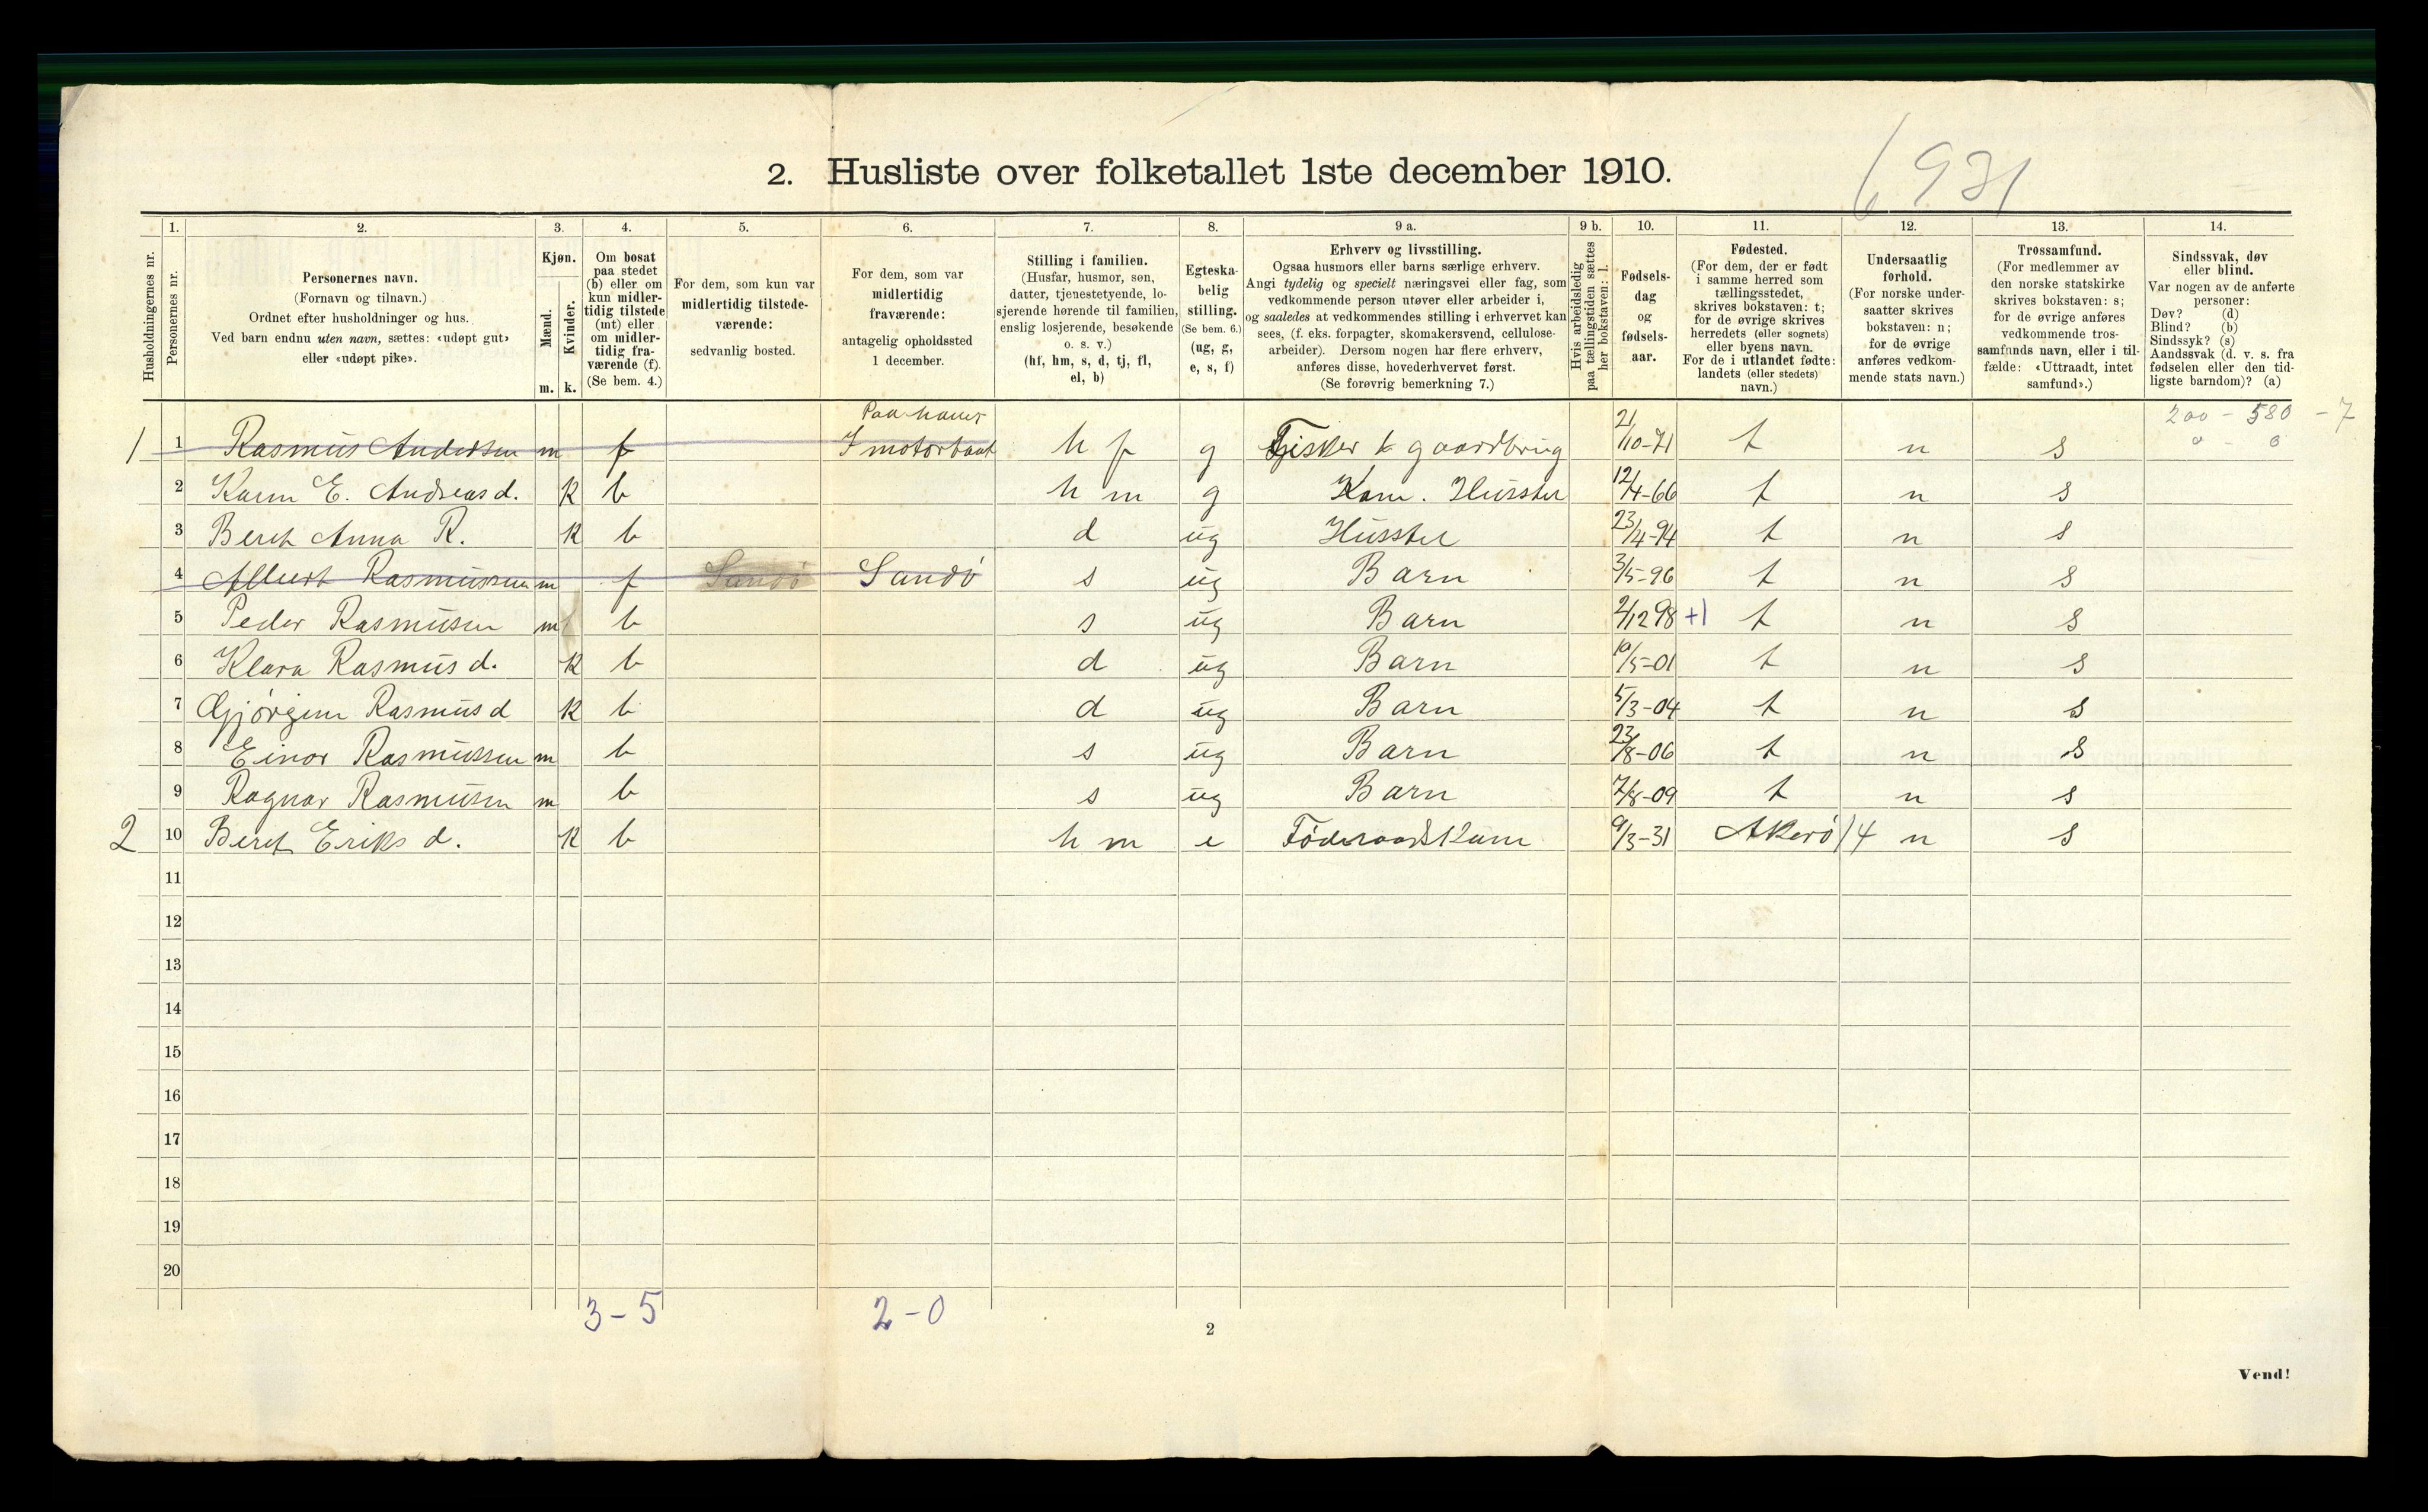 6931
2. Husliste over folketallet 1ste december 1910.
Husholdningernes nr.
1.
Personernes nr.
2.
Personernes navn.
(Fornavn og tilnavn.)
Ordnet efter husholdninger og hus.
Ved barn endnu uten navn, sættes: «udøpt gut»
eller «udøpt pike».
3.
Kjøn.
Mænd.
Kvinder.
m. k.
4.
Om bosat
paa stedet
(b) eller om
kun midler-
tidig tilstede
(mt) eller
om midler-
tidig fra-
værende (f).
(Se bem. 4.)
5.
For dem, som kun var
midlertidig tilstede-
værende:
sedvanlig bosted.
6.
For dem, som var
midlertidig
fraværende:
antagelig opholdssted
1 december.
7.
Stilling i familien.
(Husfar, husmor, søn,
datter, tjenestetyende, lo-
sjerende hørende til familien,
enslig losjerende, besøkende
o. s. v.)
(hf, hm, s, d, tj, fl,
el, b)
8.
Egteska-
belig
stilling.
(Se bem. 6.)
(ug, g,
e, s, f)
9 a.
Erhverv og livsstilling.
Ogsaa husmors eller barns særlige erhverv.
Angi tydelig og specielt næringsvei eller fag, som
vedkommende person utøver eller arbeider i,
og saaledes at vedkommendes stilling i erhvervet kan
sees, (f. eks. forpagter, skomakersvend, cellulose-
arbeider). Dersom nogen har flere erhverv,
anføres disse, hovederhvervet først.
(Se forøvrig bemerkning 7.)
9 b.
Hvis arbeidsledig
paa tællingstiden sættes
her bokstaven: l.
10.
Fødsels-
dag
og
fødsels-
aar.
11.
Fødested.
(For dem, der er født
i samme herred som
tællingsstedet,
skrives bokstaven: t;
for de øvrige skrives
herredets (eller sognets)
eller byens navn.
For de i utlandet fødte:
landets (eller stedets)
navn.)
12.
Undersaatlig
forhold.
(For norske under-
saatter skrives
bokstaven: n;
for de øvrige
anføres vedkom-
mende stats navn.)
13.
Trossamfund.
(For medlemmer av
den norske statskirke
skrives bokstaven: s;
for de øvrige anføres
vedkommende tros-
samfunds navn, eller i til-
fælde: «Uttraadt, intet
samfund».)
14.
Sindssvak, døv
eller blind.
Var nogen av de anførte
personer:
Døv? (d)
Blind? (b)
Sindssyk? (s)
Aandssvak (d. v. s. fra
fødselen eller den tid-
ligste barndom)? (a)
Paa havet 200 - 580 - 7
1 1 Rasmus Andersen m f I motorbaat h f g Fisker & gaardbrug 21/10-71 t n s 0 - 0
2 Karen E. Andreas d. K b h m g Kone. Husstel 12/4-66 t n s
3 Beret Anna R. K b d ug Husstel 23/4-94 t n s
4 Albert Rasmussen m f Sandö Sandö s ug Barn 3/5-96 t n s
5 Peder Rasmusen m b s ug Barn 2/12 98 +1 t n s
6 Klara Rasmus d. K b d ug Barn 19/5-01 t n s
7 Gjörgine Rasmus d K b d ug Barn 5/3-04 t n s
8 Einar Rasmussen m b s ug Barn 23/8-06 t n s
9 Ragnar Rasmusen m b s ug Barn 7/8-09 t n s
2 10 Beret Eriks d. K b h m e Föderaadskone 9/3-31 Akerö 14 n s
11
12
13
14
15
16
17
18
19
20
3-5 2-0
2
Vend!